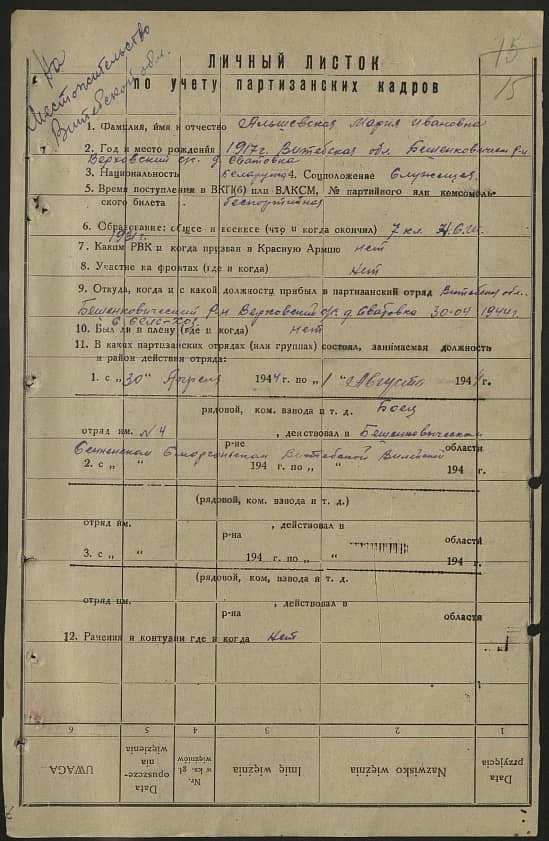 15
15
На
Местожительство
Витебской обл.
ЛИЧНЫЙ ЛИСТОК
по учету партизанских кадров
1. Фамилия, имя и отчество Альшевская Мария Ивановна
2. Год и место рождения 1917 г. Витебская обл. Бешенковичский р-н
Верховский с/с. д. Сватовка
3. Национальность Беларуска 4. Соцположение Служащая.
5. Время поступления в ВКП(б) или ВЛКСМ, № партийного или комсомоль-
ского билета беспортийная
6. Образование: общее и военное (что и когда окончил) 7 кл. Н.С.Ш.
1931г.
7. Каким РВК и когда призван в Красную Армию нет
8. Участие на фронтах (где и когда) Нет
9. Откуда, когда и с какой должности прибыл в партизанский отряд Витебская обл.
Бешенковический р-н Верховский с/с. д. Сватовка 30-04 1944г.
10. Был ли в плену (где и когда) нет
11. В каких партизанских отрядах (или группах) состоял, занимаемая должность
и район действия отряда:
1. с „30“ Апреля 1944 г. по „1“ Августа 1944 г.
рядовой, ком. взвода и т. д. Боец
отряд им. №4 , действовал в Бешенковическом
р-не области
Сенненском Сморгоньском Витебской Вилейской
2. с „ “ 194 г. по „ “ 194 г.
(рядовой, ком. взвода и т. д.)
отряд им. , действовал в
р-на области
3. с „ “ 194 г. по „ “ 194 г.
(рядовой, ком, взвода и т. д.
отряд им. , действовал в
р-на области
12. Ранения и контузии где и когда Нет
6 5 4 3 2 1
UWAGA
Data opuszcze-
nia
więzienia
Nr.
w ks. gł.
więźniów
Imię więźnia
Nazwisko więźnia
Data
przyjęcia